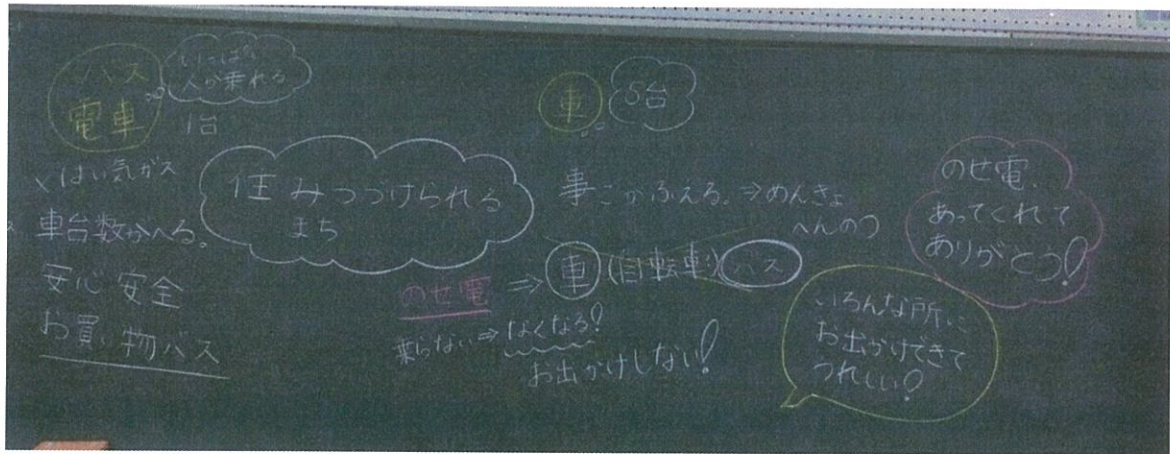 バス
電車
いっぱい
人が乗れる
1台
はい気ガス
車台数がへる。
安心安全
お買い物バス
住みつづけられる
まち
車
5台
事こがふえる。⇒めんきょ
へんのう
のせ電⇒車(自転車)バス
乗らない⇒なくなる!
お出かけしない!
のせ電、
あってくれて
ありがとう!
いろんな所に
お出かけできて
うれしい!